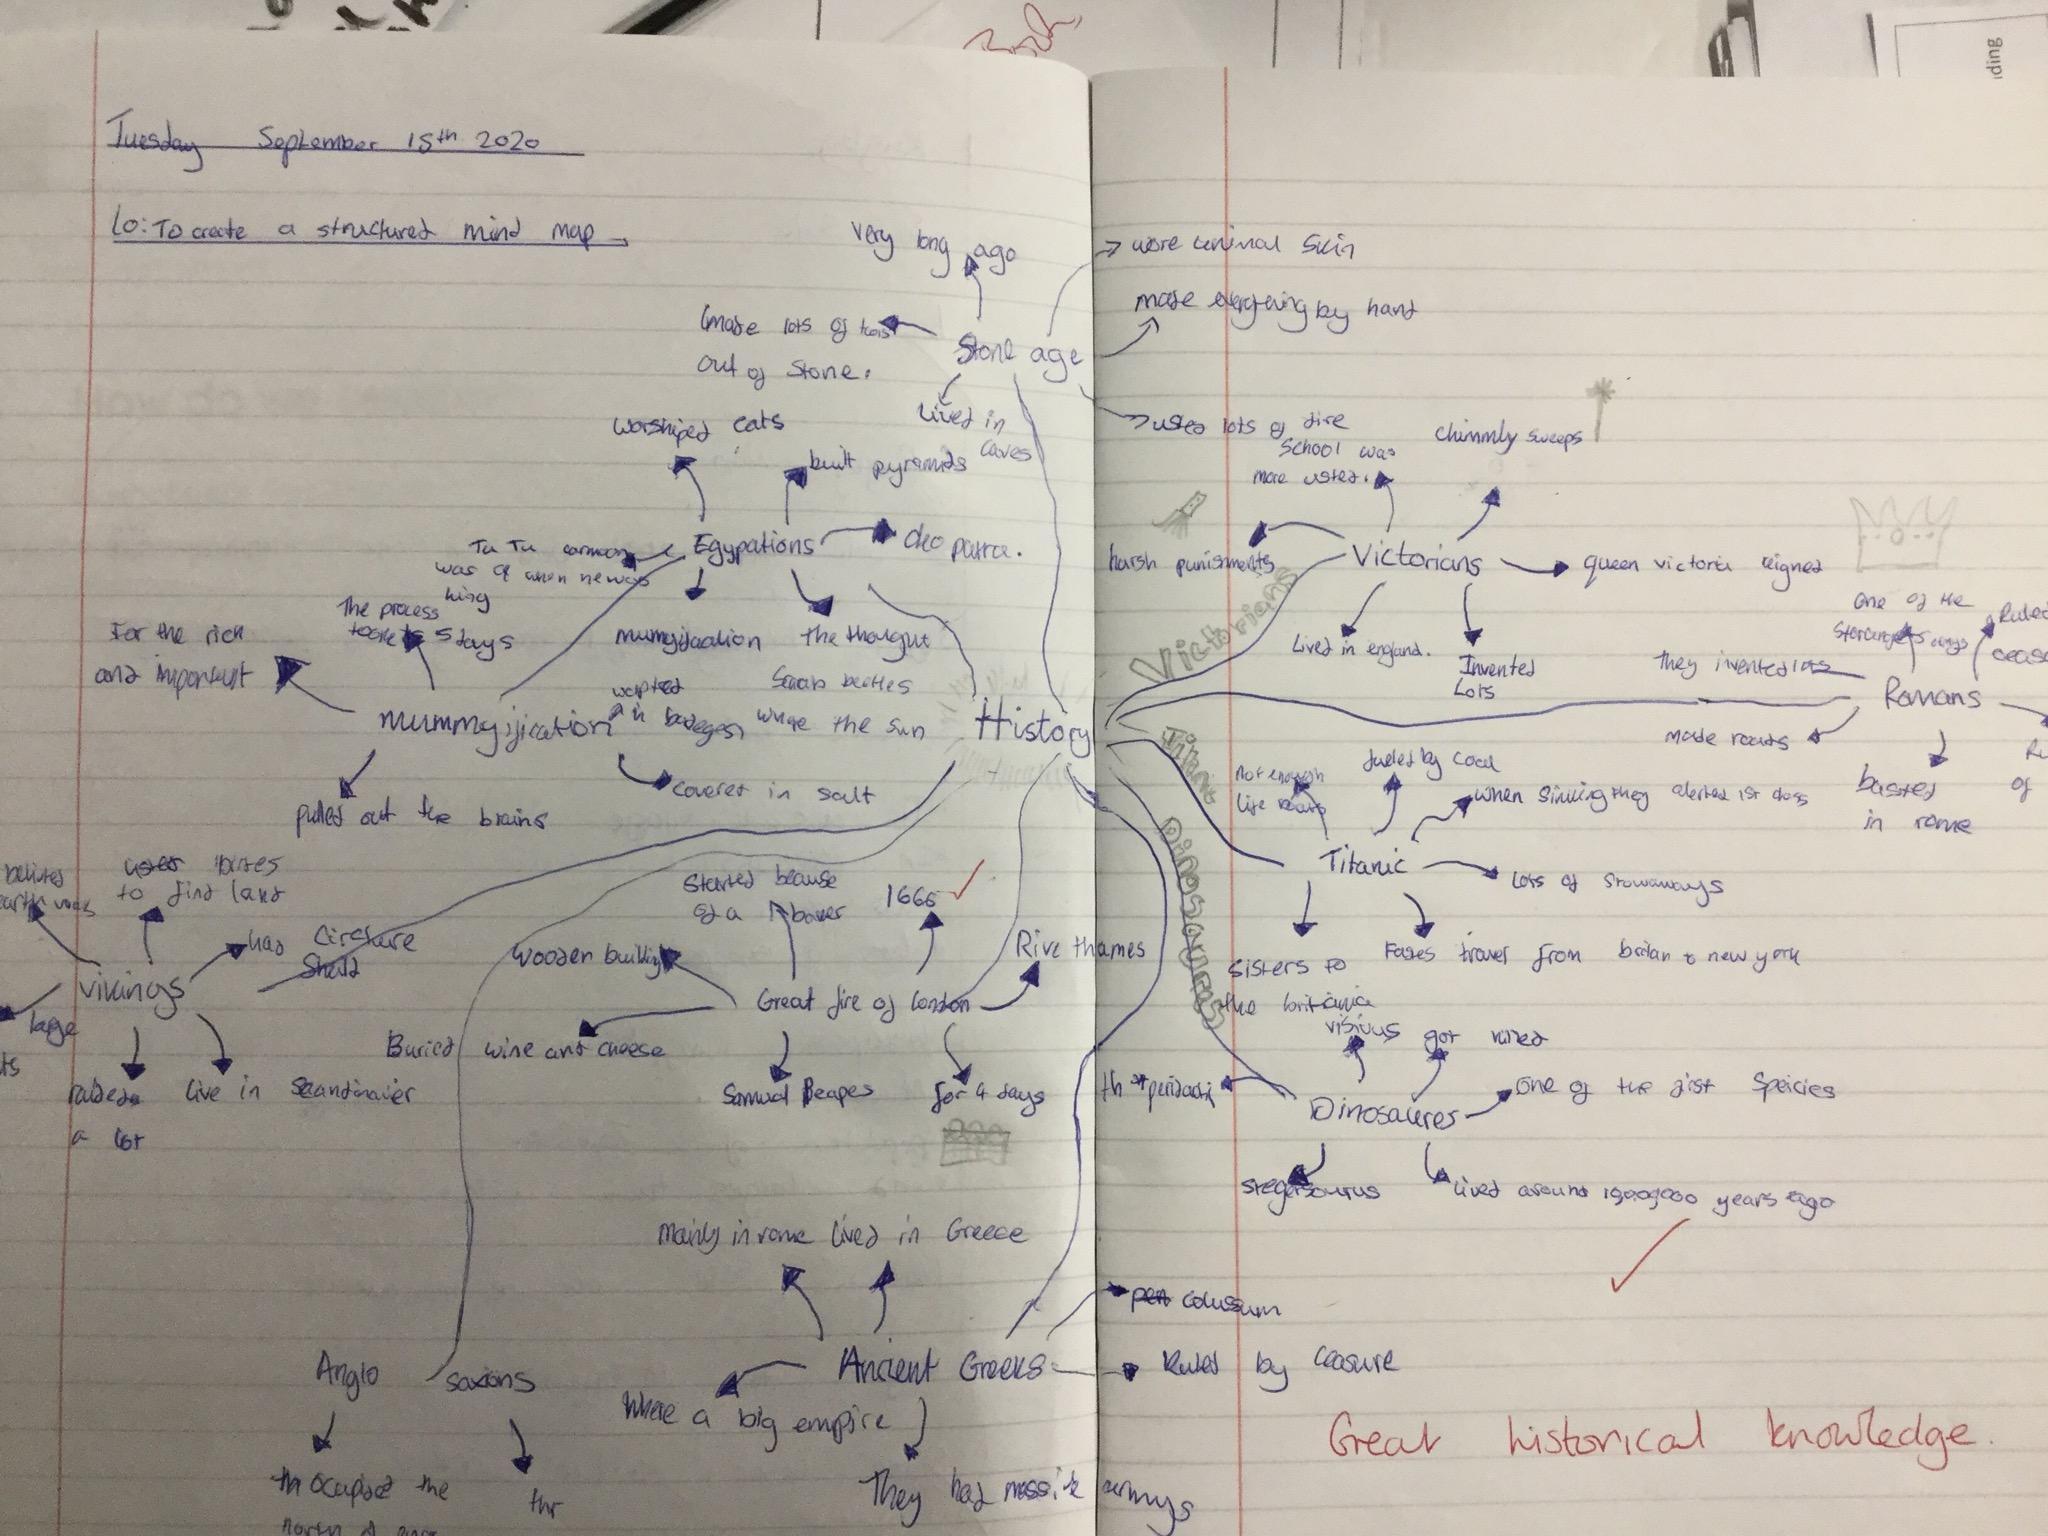 Tuesday September 15th 2020
Lo: To create a structured mind map
very long ago
made lots of tools
out of stone.
Stone age
Lived in
caves
wore animal skin
made everything by hand
used lots of fire
worshiped cats
built pyramids
Egypations
cleo patra.
Tu Tu
was 9 when he was
king
mummyification
the thought
Scarab beetles
where the sun
The process
5 days
For the rich
and important
mummyification
in
covered in salt
pulled out the brains
History
School was
more
chimmly sweeps
harsh punishments
Victorians
queen victoria reigned
Lived in england.
Invented
Lots
Victorians
One of the
Ruled
They invented lots
Romans
made roads
basted
in rome
of
not enough
life boats
fueled by coal
when sinking they alerted 1st class
Titanic
Lots of stowaways
sisters to
the
travel from to new york
Dinosaurus
vikings
to find land
has
Sheild
large
raided
a lot
live in Scandinavier
Started because
of a
1666
Wooden building
Rive thames
Great fire of london
Buried wine and cheese
Samual Peapes
for 4 days
got
Dinosaures
One of the first Speicies
stegersaurus
Lived around years ago
mainly in rome
Lived in Greece
Ancient Greeks
colussum
Ruled by ceasure
Where a big empire
They had massive armys
Anglo saxions
occupied the
north of
thr
Great historical knowledge.
ding